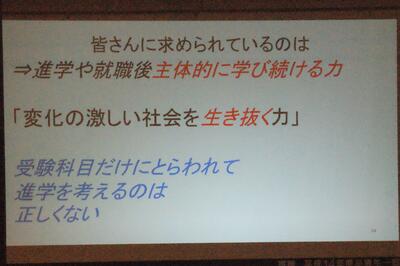 皆さんに求められているのは
⇒進学や就職後主体的に学び続ける力
「変化の激しい社会を生き抜く力」
受験科目だけにとらわれて
進学を考えるのは
正しくない